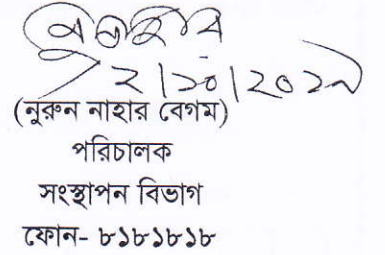 (নুরুন নাহার বেগম)
পরিচালক
সংস্থাপন বিভাগ
ফোন- ৮১৮১৮১৮